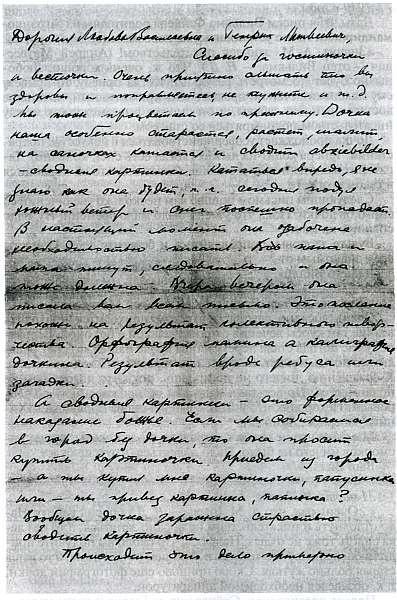 Дорогия Любовь Васильевна и Генрих Матвеевич,
Спасибо за гостиночки
и весточки. Очень приятно слышать что вы
здоровы и поправляетесь, не кужите и т.д.
Мы тоже процветаем по прежнему. Дочка
наша особенно старается, растет, шалит,
на саночках катается и сводит abziebilder
– сводныя картинки. Кататься впредь, я не
знаю как она будет, т.к. сегодня подул
южный ветер и снег поспешно пропадает.
В настоящий момент она озабочена
необходимостью писать. Все папа и
мама пишут, следовательно и она
тоже должна – Вчера вечером она
писала вам всем письмо. Это послание
похоже на результат колективного твор-
чества. Орфография мамина а калиграфия
дочкина. Результат вроде ребуса или
загадки.
А сводныя картинки – это форменное
наказание божье. Если мы собираемся
в город без дочки, то она просит
купить картиночки. Приедем из города
– а ты купил мне картиночки, папусинька
или – ты привез картинка, папочка?
Вообщем дочка заражена страстью
сводить картиночки.
Происходит это дело примерно